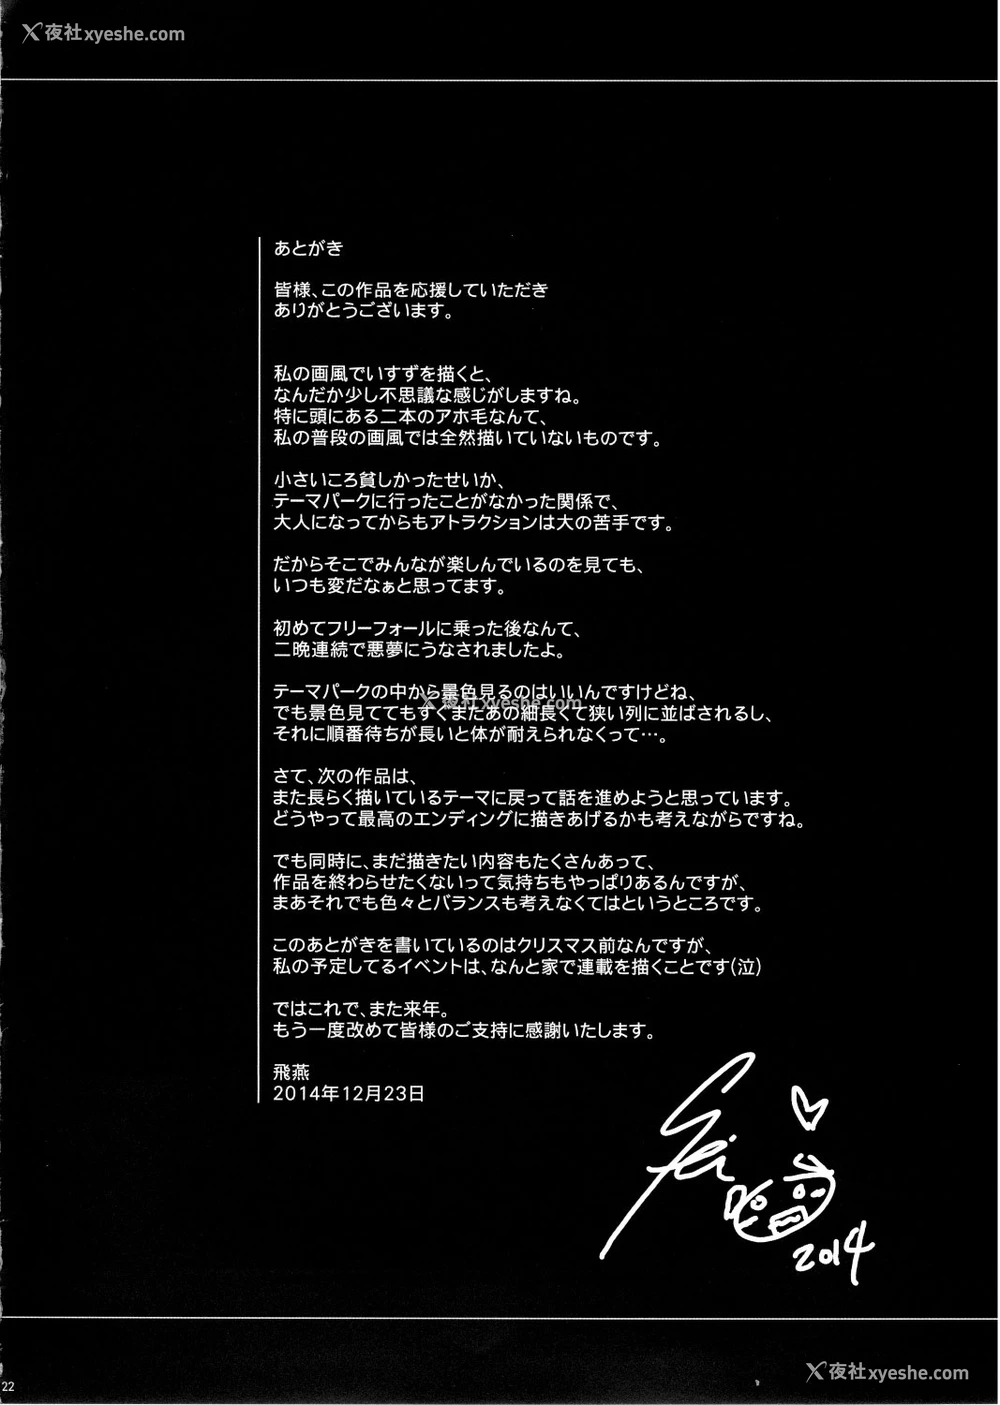 夜社xyeshe.com
あとがき
皆様、この作品を応援していただき
ありがとうございます。
私の画風でいすずを描くと、
なんだか少し不思議な感じがしますね。
特に頭にある二本のアホ毛なんて、
私の普段の画風では全然描いていないものです。
小さいころ貧しかったせいか、
テーマパークに行ったことがなかった関係で、
大人になってからもアトラクションは大の苦手です。
だからそこでみんなが楽しんでいるのを見ても、
いつも変だなぁと思ってます。
初めてフリーフォールに乗った後なんて、
二晩連続で悪夢にうなされましたよ。
テーマパークの中から景色見るのはいいんですけどね、
夜社xyeshe.com
でも景色見ててもすぐまたあの細長くて狭い列に並ばされるし、
それに順番待ちが長いと体が耐えられなくって…。
さて、次の作品は、
また長らく描いているテーマに戻って話を進めようと思っています。
どうやって最高のエンディングに描きあげるかも考えながらですね。
でも同時に、まだ描きたい内容もたくさんあって、
作品を終わらせたくないって気持ちもやっぱりあるんですが、
まあそれでも色々とバランスも考えなくてはというところです。
このあとがきを書いているのはクリスマス前なんですが、
私の予定してるイベントは、なんと家で連載を描くことです(泣)
ではこれで、また来年。
もう一度改めて皆様のご支持に感謝いたします。
飛燕
2014年12月23日
2014
夜社xyeshe.com
22